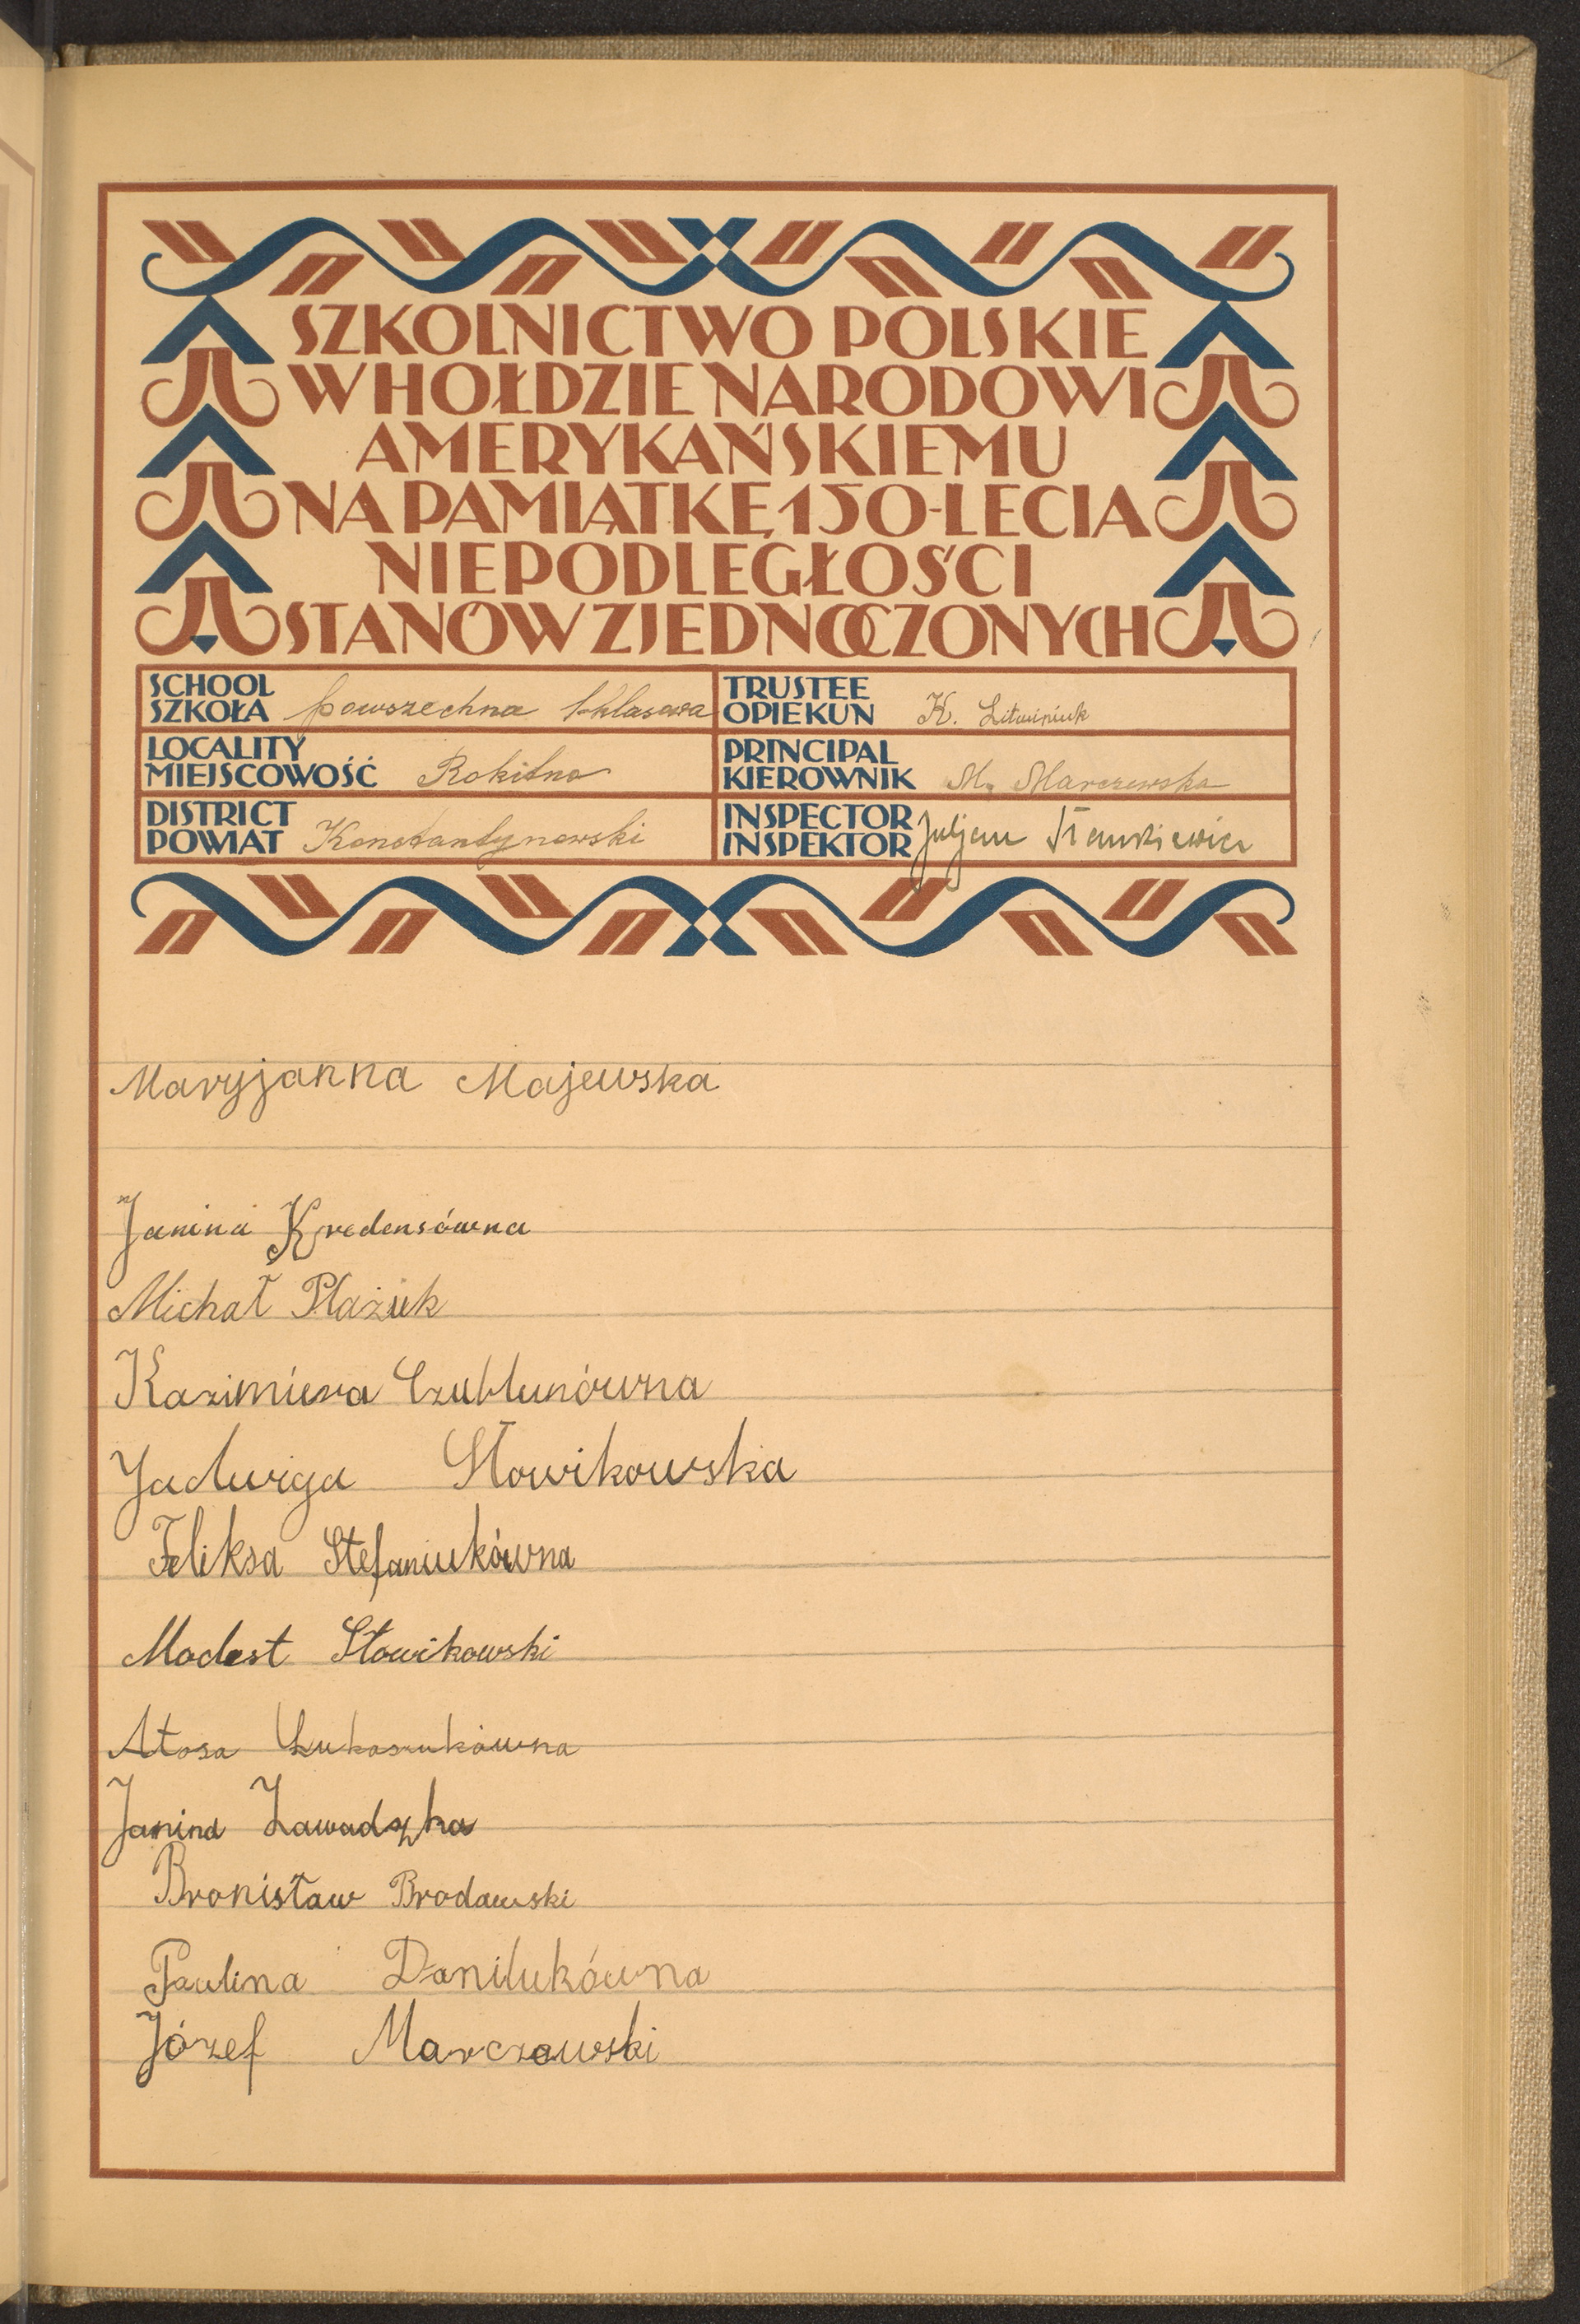 SZKOLNICTWO POLSKIE
W HOŁDZIE NARODOWI
AMERYKAŃSKIEMU
NA PAMIĄTKĘ 150-LECIA
NIEPODLEGŁOŚCI
STANÓW ZJEDNOCZONYCH
SCHOOL
SZKOŁA powszechna 1-klasowa
TRUSTEE
OPIEKUN K. Litwiniuk
LOCALITY
MIEJSCOWOŚĆ Rokitno
PRINCIPAL
KIEROWNIK M. Marczewska
DISTRICT
POWIAT Konstantynowski
INSPECTOR
INSPEKTOR Juljan Stankiewicz
Maryjanna Majewska
Janina Kredensówna
Michał Płażuk
Kazimiera Czublunówna
Jadwiga Słowikowska
Feliksa Stefaniukówna
Modest Słowikowski
Atosa Łukaszukówna
Janina Zawadzka
Bronisław Brodawski
Paulina Danilukówna
Józef Marczewski